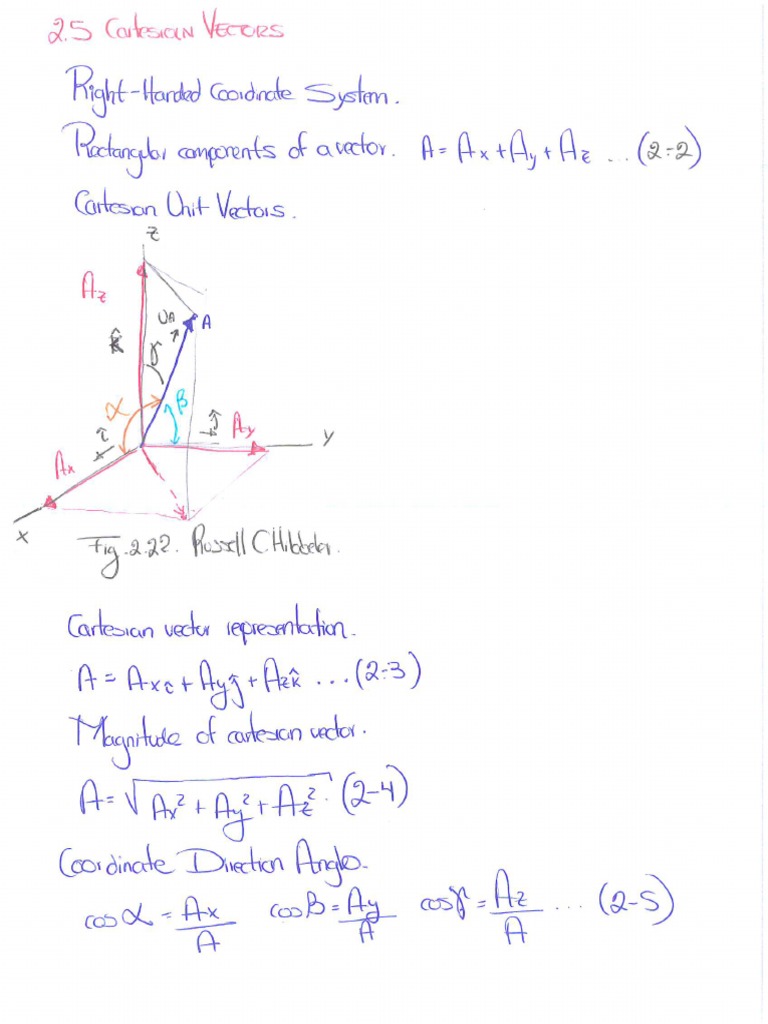 2.5 CARTESIAN VECTORS
Right-Handed Coordinate System.
Rectangular components of a vector. A = Ax + Ay + Az ... (2-2)
Cartesian Unit Vectors.
z
Az
UA
A
k̂
γ
α
β
î
ĵ
Ay
y
Ax
x
Fig. 2.22. Russell C. Hibbeler.
Cartesian vector representation.
A = Axî + Ayĵ + Azk̂ ... (2-3)
Magnitude of cartesian vector.
A = √Ax² + Ay² + Az². (2-4)
Coordinate Direction Angles.
cos α = Ax/A cos β = Ay/A cos γ = Az/A ... (2-5)